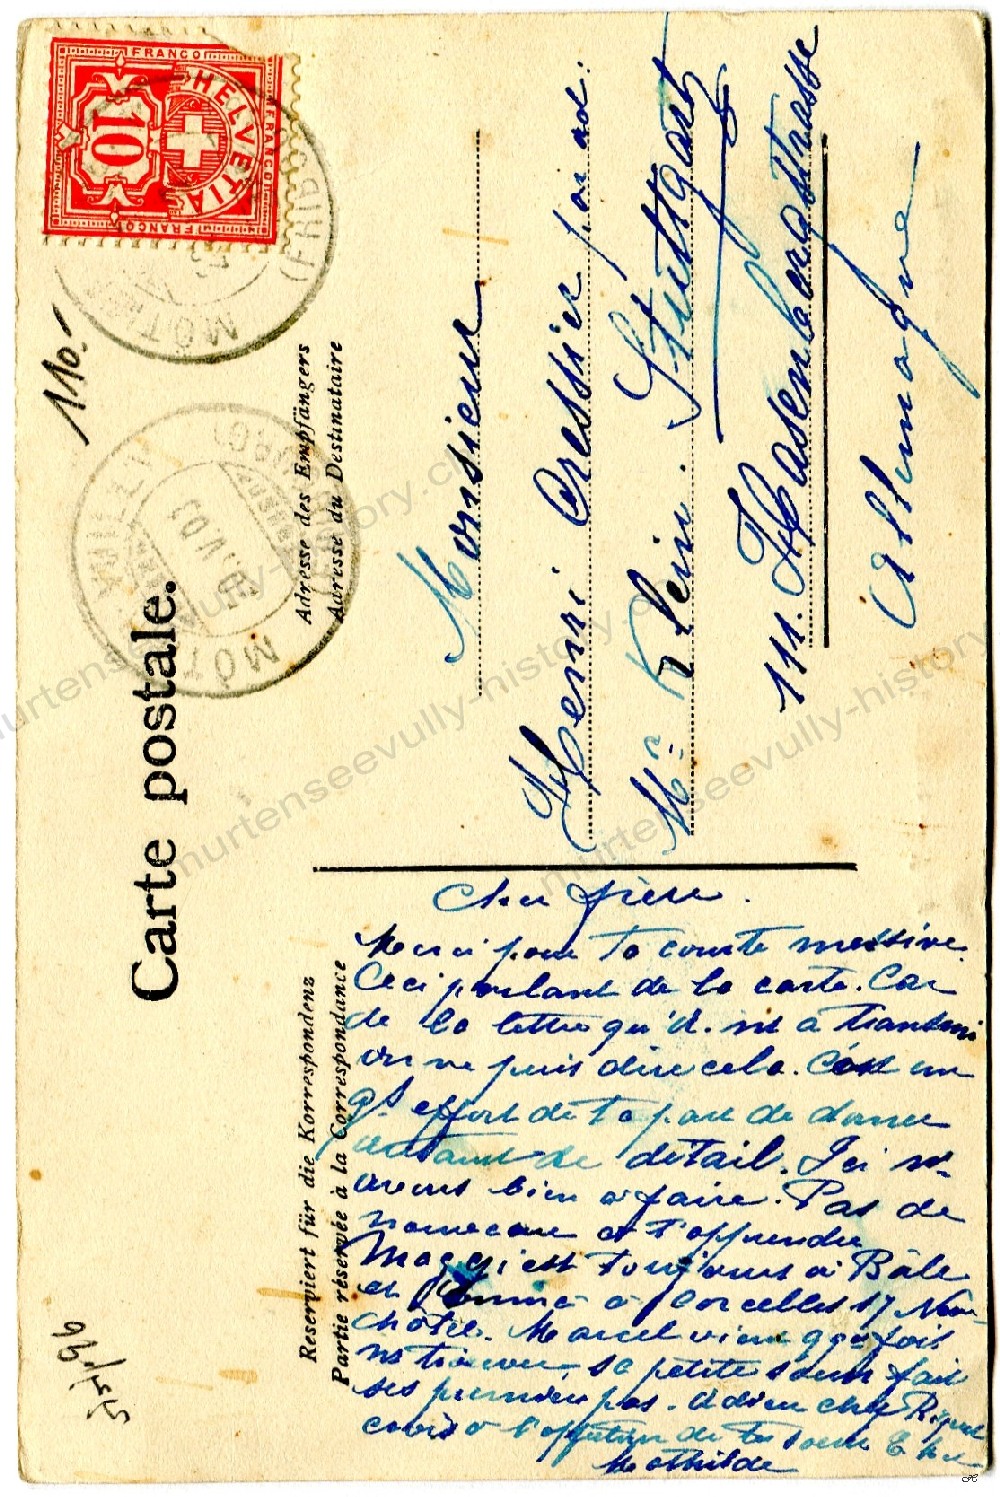 FRANCO
HELVETIA
10
FRANCO
FRANCO
MÔTIER
(FRIBOURG)
MÔTIER VULLY
(FRIBOURG)
110.-
Carte postale.
Adresse des Empfängers
Adresse du Destinataire
Monsieur
Henri Cressier par ad.
Mr Klein. Stuttgart
111. Hasenbergstrasse
Allemagne
Reserviert für die Korrespondenz
Partie réservée à la Correspondance
Cher frère.
Merci pour ta courte missive.
Ceci parlant de la carte. Car
de la lettre qu'il ns a transmi
on ne puis dire cela. C'est un
gd effort de ta part de donner
autant de détail. Ici ns
avons bien à faire. Pas de
nouveau à t'apprendre
Maggi est toujours à Bâle
et à Corcelles s/ Neu-
châtel. Marcel vient qq fois
ns trouver sa petite soeur fait
ses premiers pas. Adieu cher
à l'affection de ta soeur
Mathilde
murtenseevully-history.ch
murtenseevully-history.ch
murtenseevully-history